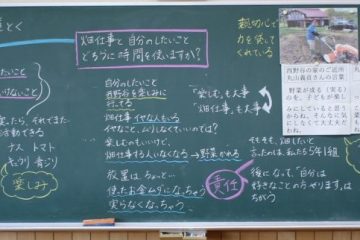 畑仕事と自分のしたいこと
どちらに時間を使いますか?
親切心で
力を貸して
くれている
西野谷の家のご近所
丸山義直さんの言葉
野菜が成る(実る)
のを、子どもが楽し
みにしていると思う
からね。そんなに気
にしなくて大丈夫だ
わね。
自分のしたいこと
西野谷を楽しみに
行ってる
畑仕事 イヤな人もいる
イヤなこと、ムリしなくていいのでは?
楽しむのもいいけど、
畑仕事する人いなくなる→野菜かれる
放置は、ちょっと…
使ったお金ムダになっちゃう
実らなくなっちゃう
「楽しむ」も大事
「畑仕事」も大事
責任
そもそも、畑したいと
言ったのは、私たち5年1組
後になって、「自分は
好きなことの方やります」は
ちがう
したいこと
ナス トマト
キュウリ 青ジソ
楽しみ